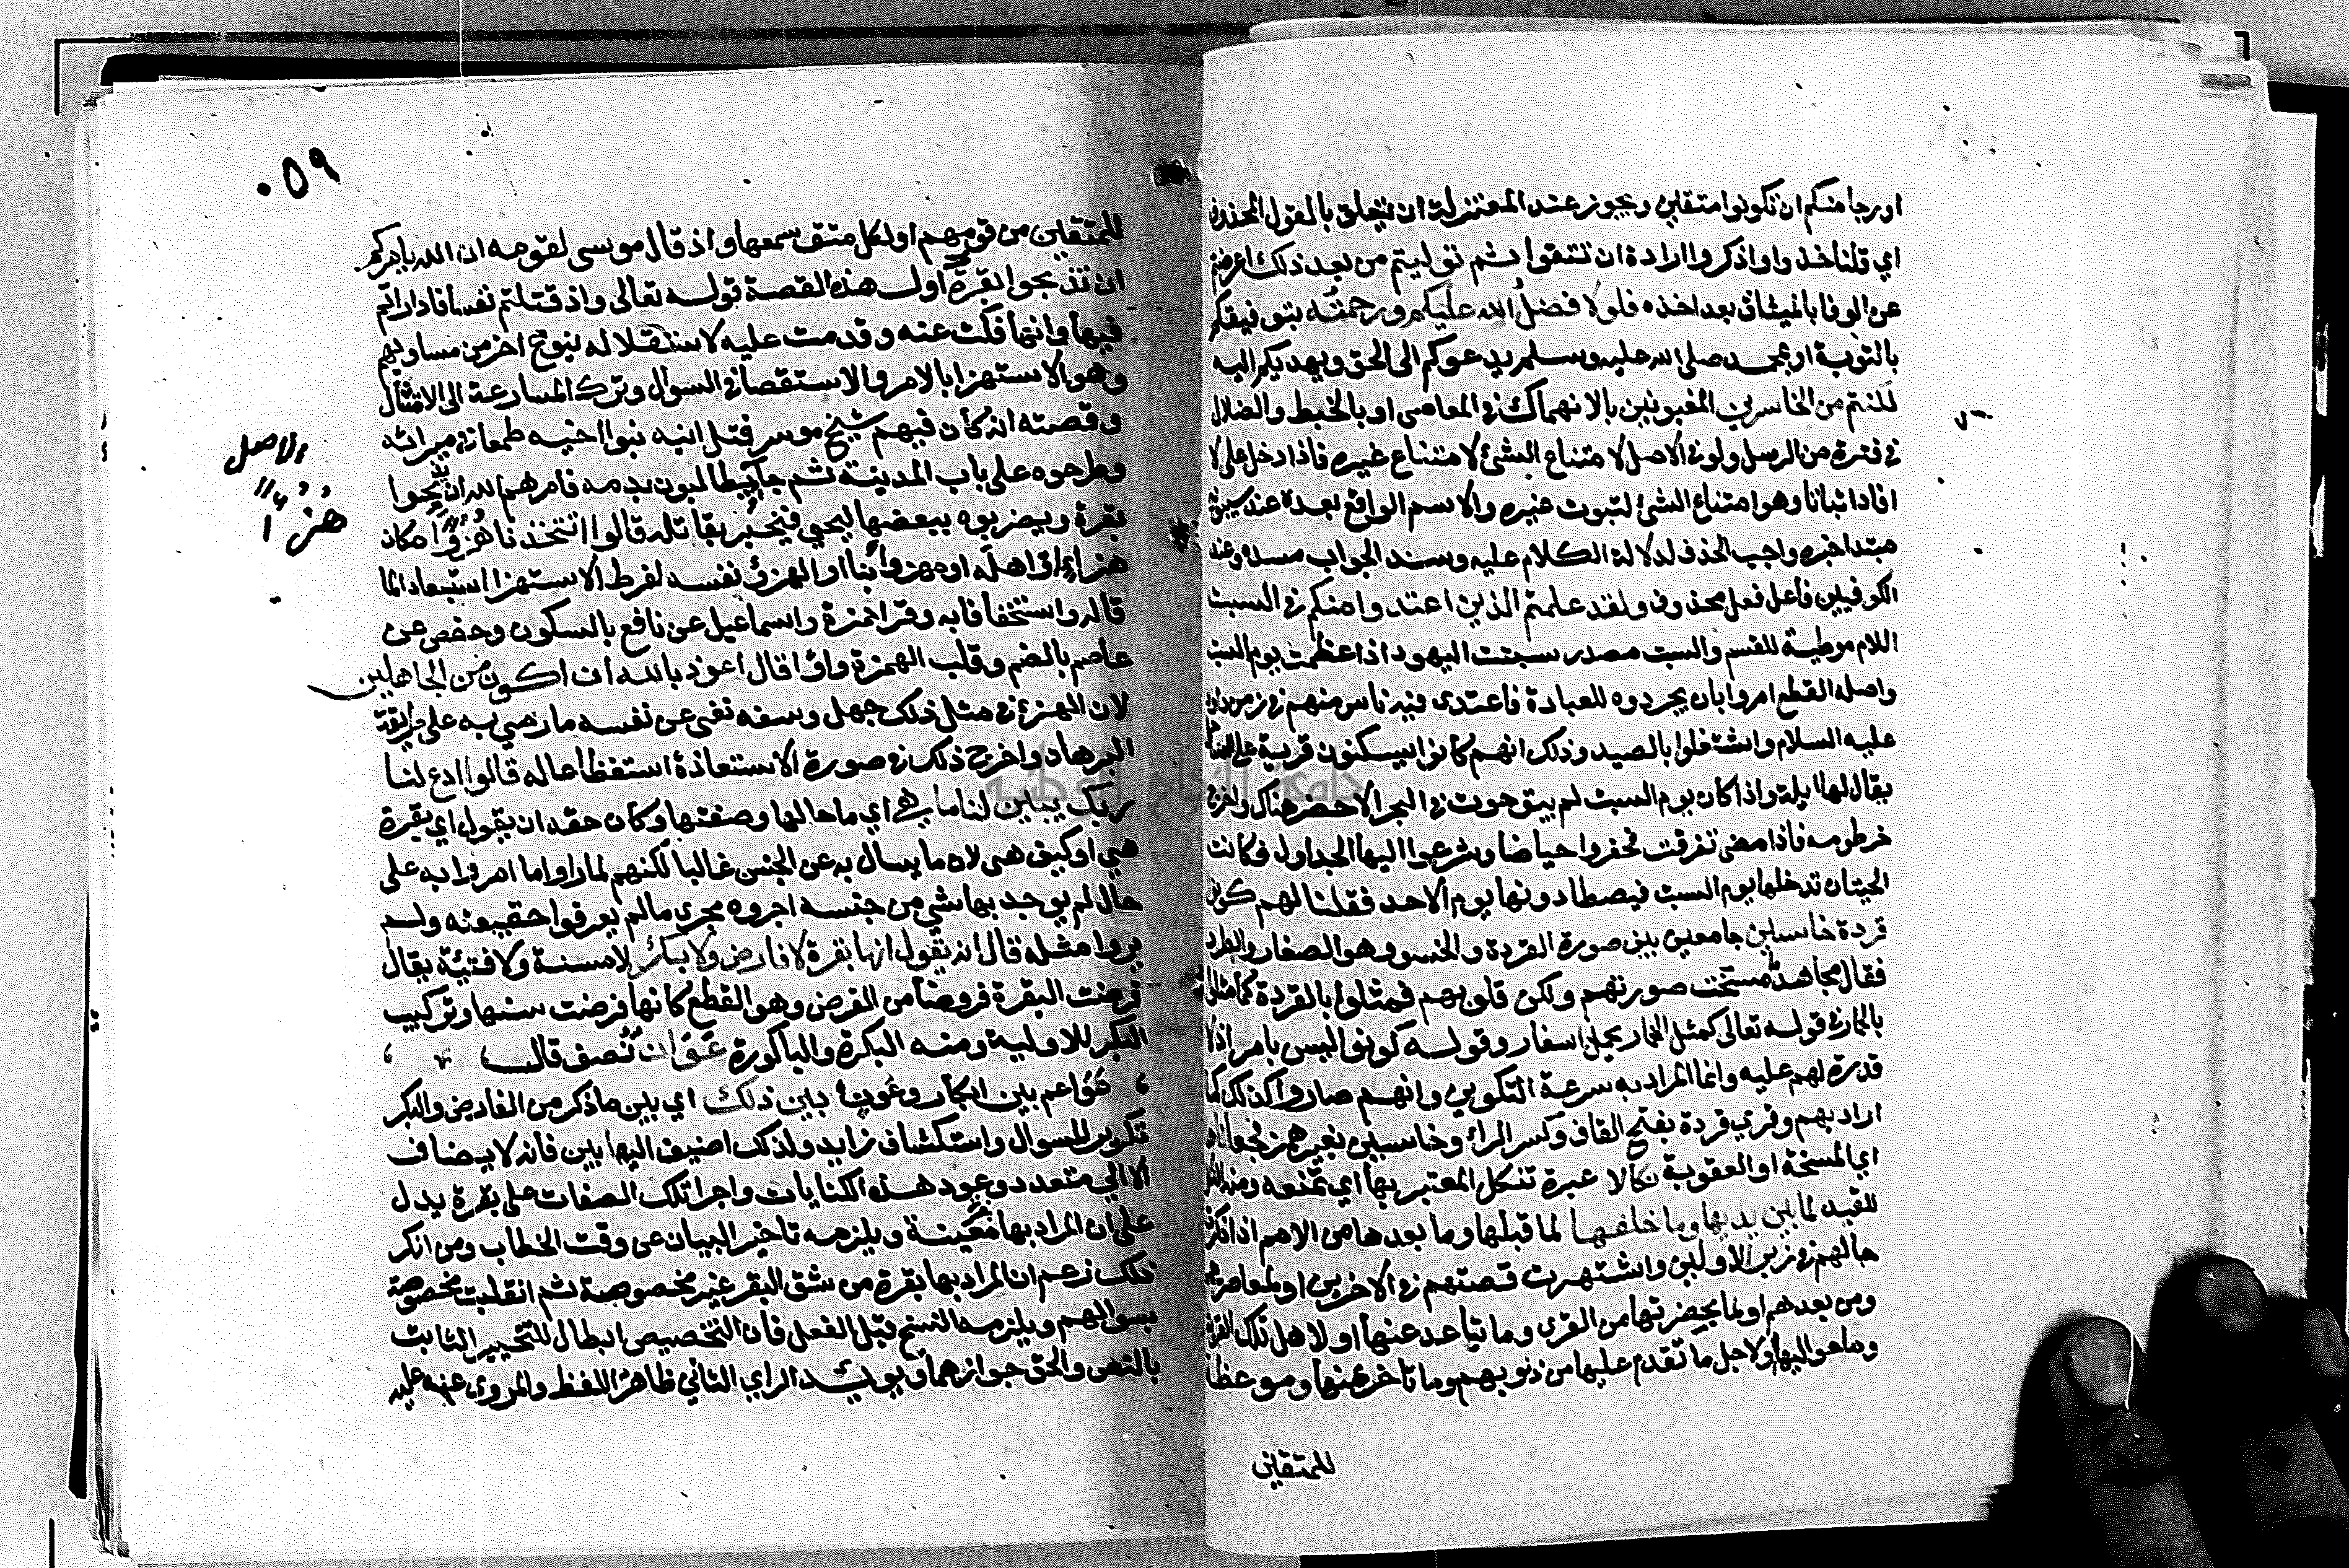 او رجا منكم ان تكونوا متقين ويجوز عند المعتزلة ان يتعلق بالقول المحذوف
اي قلنا خذوا واذكروا ارادة ان تتقوا ثم توليتم من بعد ذلك اعرضتم
عن الوفا بالميثاق بعد اخذه فلولا فضل الله عليكم ورحمته بتوفيقكم
بالتوبة او بمحمد صلى الله عليه وسلم يدعوكم الى الحق ويهديكم اليه
لكنتم من الخاسرين المغبونين بالانهماك في المعاصى او بالخبط والضلال
في فترة من الرسل ولو في الاصل لامتناع الشئ لامتناع غيره فاذا دخل على لا
افاد اثباتا وهو امتناع الشئ لثبوت غيره والاسم الواقع بعده عند سيبويه
مبتدا خبره واجب الحذف لدلالة الكلام عليه وسد الجواب مسده وعند
الكوفيين فاعل فعل محذوف ولقد علمتم الذين اعتدوا منكم في السبت
اللام موطية للقسم والسبت مصدر سبتت اليهود اذا عظمت يوم السبت
واصله القطع امروا بان يجردوه للعبادة فاعتدى فيه ناس منهم في زمن داود
عليه السلام واشتغلوا بالصيد وذلك انهم كانوا يسكنون قرية على الساحل
يقال لها ايلة واذا كان يوم السبت لم يبق حوت في البحر الا حضر هناك واخرج
خرطومه فاذا مضى تفرقت فحفروا حياضا وشرعوا اليها الجداول وكانت
الحيتان تدخلها يوم السبت فيصطادونها يوم الاحد فقلنا لهم كونوا
قردة خاسئين جامعين بين صورة القردة والخسو وهو الصغار والطرد
فقال مجاهد ما مسخت صورتهم ولكن قلوبهم فمثلوا بالقردة كما مثلوا
بالحمار في قوله تعالى كمثل الحمار يحمل اسفارا وقوله كونوا ليس بامر اذ لا
قدرة لهم عليه وانما المراد به سرعة التكوين وانهم صاروا كذلك كما
اراد بهم وقري قردة بفتح القاف وكسر الراء وخاسين بغير همز فجعلناها
اي المسخة او العقوبة نكالا عبرة تنكل المعتبر بها اي تمنعه ومنه النكل
للقيد لما بين يديها وما خلفها لما قبلها وما بعدها من الامم اذ ذكرت
حالهم في زبر الاولين واشتهرت قصتهم في الاخرين او لمعاصريهم
ومن بعدهم او لما يحضرتها من القرى وما تباعد عنها او لاهل تلك القرية
وما حواليها او لاجل ما تقدم عليها من ذنوبهم وما تاخر منها وموعظة
للمتقين
٠٥٩
للمتقين من قومهم او لكل متق سمعها واذ قال موسى لقومه ان الله يامركم
ان تذبحوا بقرة اول هذه القصة قوله تعالى واذ قتلتم نفسا فاداراتم
فيها وانما فكت عنه وقدمت عليه لاستقلاله بنوع اخر من مساويهم
وهو الاستهزا بالامر والاستقصا في السوال وترك المسارعة الى الامتثال
وقصته انه كان فيهم شيخ موسر فقتل ابنه بنوا اخيه طمعا في ميراثه
وطرحوه على باب المدينة ثم جاوا يطالبون بدمه فامرهم الله ان يذبحوا
بقرة ويضربوه ببعضها ليحيى فيخبر بقاتله قالوا اتتخذنا هزؤا مكان
هزء او اهله او مهزوا بنا او الهزئ نفسه لفرط الاستهزا استبعادا لما
قاله واستخفافا به وقرا حمزة واسماعيل عن نافع بالسكون وحفص عن
عاصم بالضم وقلب الهمزة واوا قال اعوذ بالله ان اكون من الجاهلين
لان الهزئ في مثل ذلك جهل وسفه نفى عن نفسه ما رمي به على طريقة
البرهان واخرج ذلك في صورة الاستعاذة استفظاعا له قالوا ادع لنا
ربك يبين لنا ما هي اي ما حالها وصفتها وكان حقه ان يقول اي بقرة
هي او كيف هى لان ما يسال به عن الجنس غالبا لكنهم لما راوا ما امروا به على
حال لم يوجد بها شي من جنسه اجروه مجرى ما لم يعرفوا حقيقته ولم
يروا مثله قال انه يقول انها بقرة لا فارض ولا بكر لا مسنة ولا فتية يقال
فرضت البقرة فروضا من الفرض وهو القطع كانها فرضت سنها وتركيب
البكر للاولية ومنه البكرة والباكورة عوان نصف قال
نواعم بين ابكار وعون بين ذلك اي بين ما ذكر من الفارض والبكر
تكوير للسوال واستكشاف زايد ولذلك اضيف اليها بين فانه لا يضاف
الا الى متعدد وعود هذه الكنايات واجرا تلك الصفات على بقرة يدل
على ان المراد بها معينة ويلزمه تاخير البيان عن وقت الخطاب ومن انكر
ذلك زعم ان المراد بها بقرة من شق البقر غير مخصوصة ثم انقلبت مخصوصة
بسوالهم ويلزمه النسخ قبل الفعل فان التخصيص ابطال للتخيير الثابت
بالنص والحق جوازهما ويويد الراي الثاني ظاهر اللفظ والمروي عنه عليه
الاصل
هزءا
جامعة النجاح الوطنية